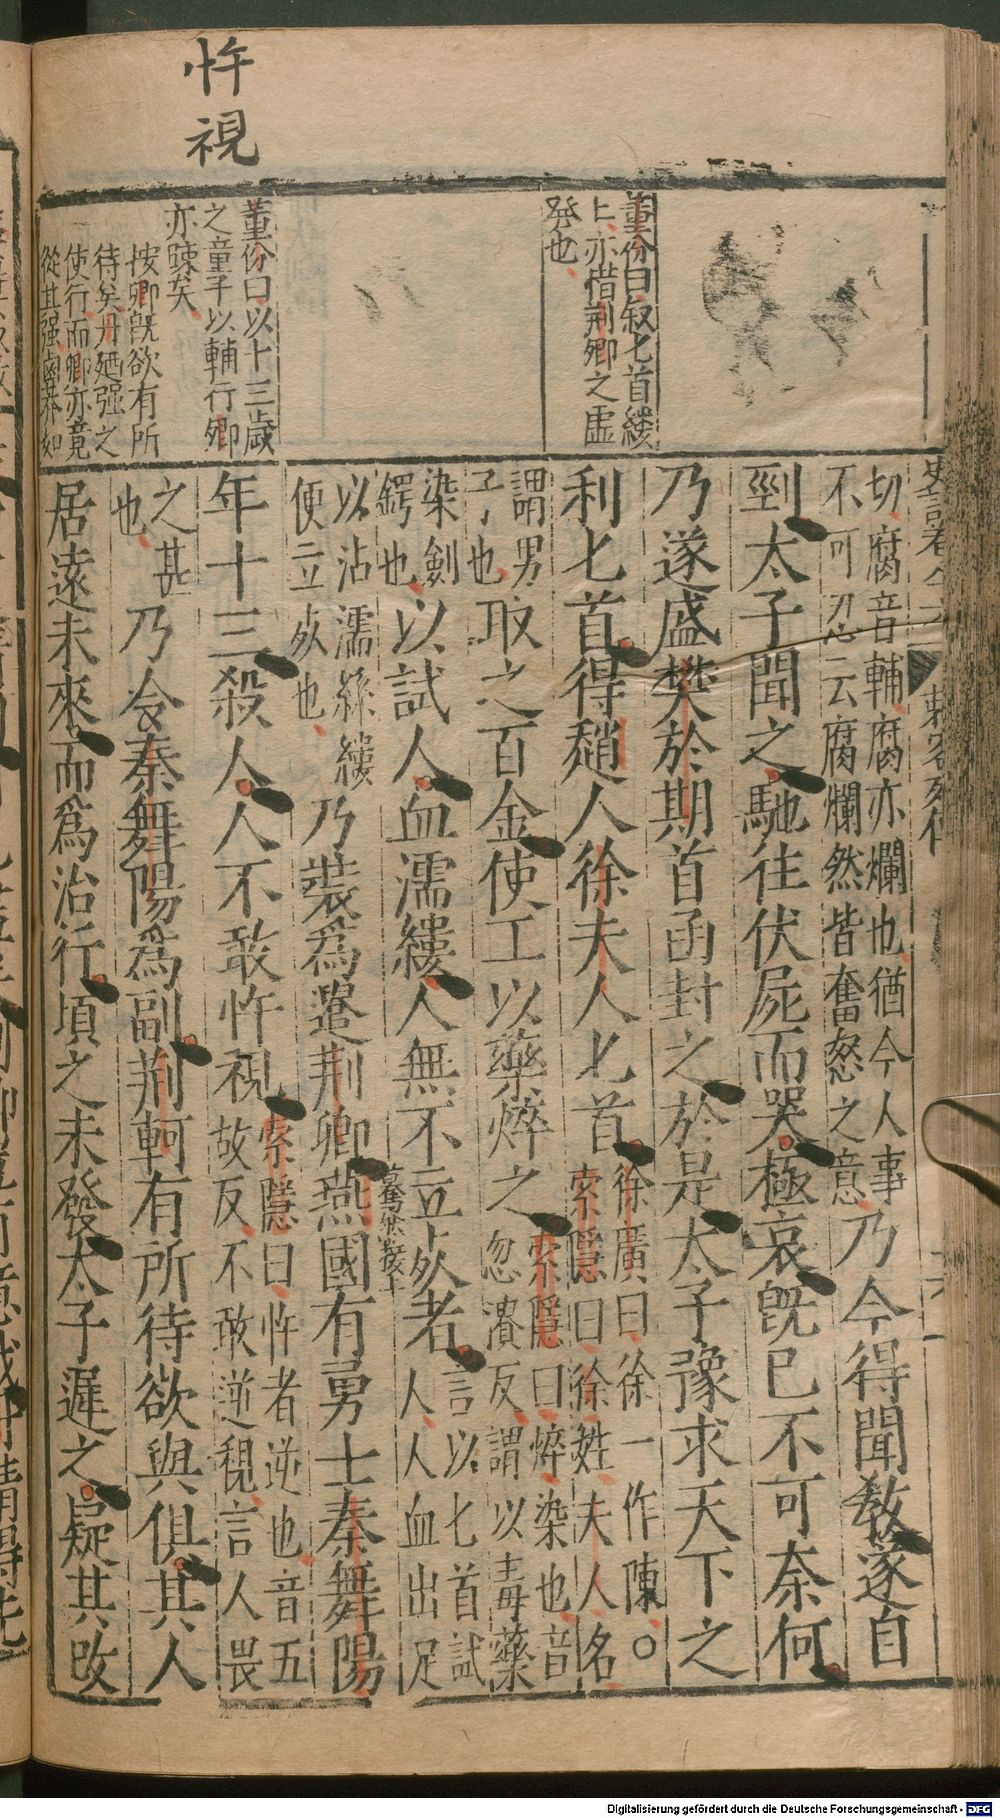 忤視
董份曰叙匕首纓
上亦借荆卿之虛
發也
董份曰以十三歲
之童子以輔行卿
亦疎矣
按卿既欲有所
待矣丹廼强之
使行而卿亦竟
從其强鹵莽如
切腐音輔腐亦爛也猶今人事
不可忍云腐爛然皆奮怒之意
乃今得聞教遂自
剄太子聞之馳往伏屍而哭極哀既已不可奈何
乃遂盛樊於期首函封之於是太子豫求天下之
利匕首得趙人徐夫人匕首
徐廣曰徐一作陳○
索隱曰徐姓夫人名
謂男
子也
取之百金使工以藥焠之
索隱曰焠染也音
忽潰反謂以毒藥
染劍
鍔也
以試人血濡縷人無不立死者
言以匕首試
人人血出足
以沾濡絲縷
便立死也
乃裝爲遣荆卿燕國有勇士秦舞陽
驀然接下
年十三殺人人不敢忤視
索隱曰忤者逆也音五
故反不敢逆視言人畏
之甚
也
乃令秦舞陽爲副荆軻有所待欲與俱其人
居遠未來而爲治行頃之未發太子遲之疑其改
史記卷八十六
刺客列傳
Digitalisierung gefördert durch die Deutsche Forschungsgemeinschaft - DFG